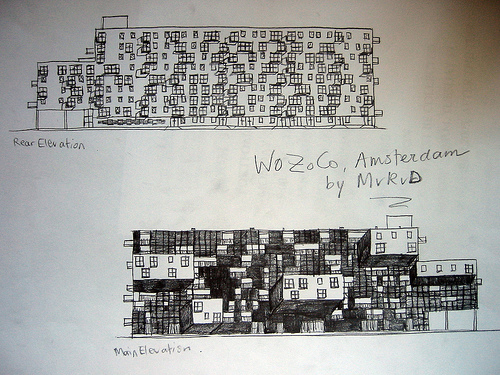 Rear Elevation
WoZoCo, Amsterdam
by MvRvD
Main Elevation.